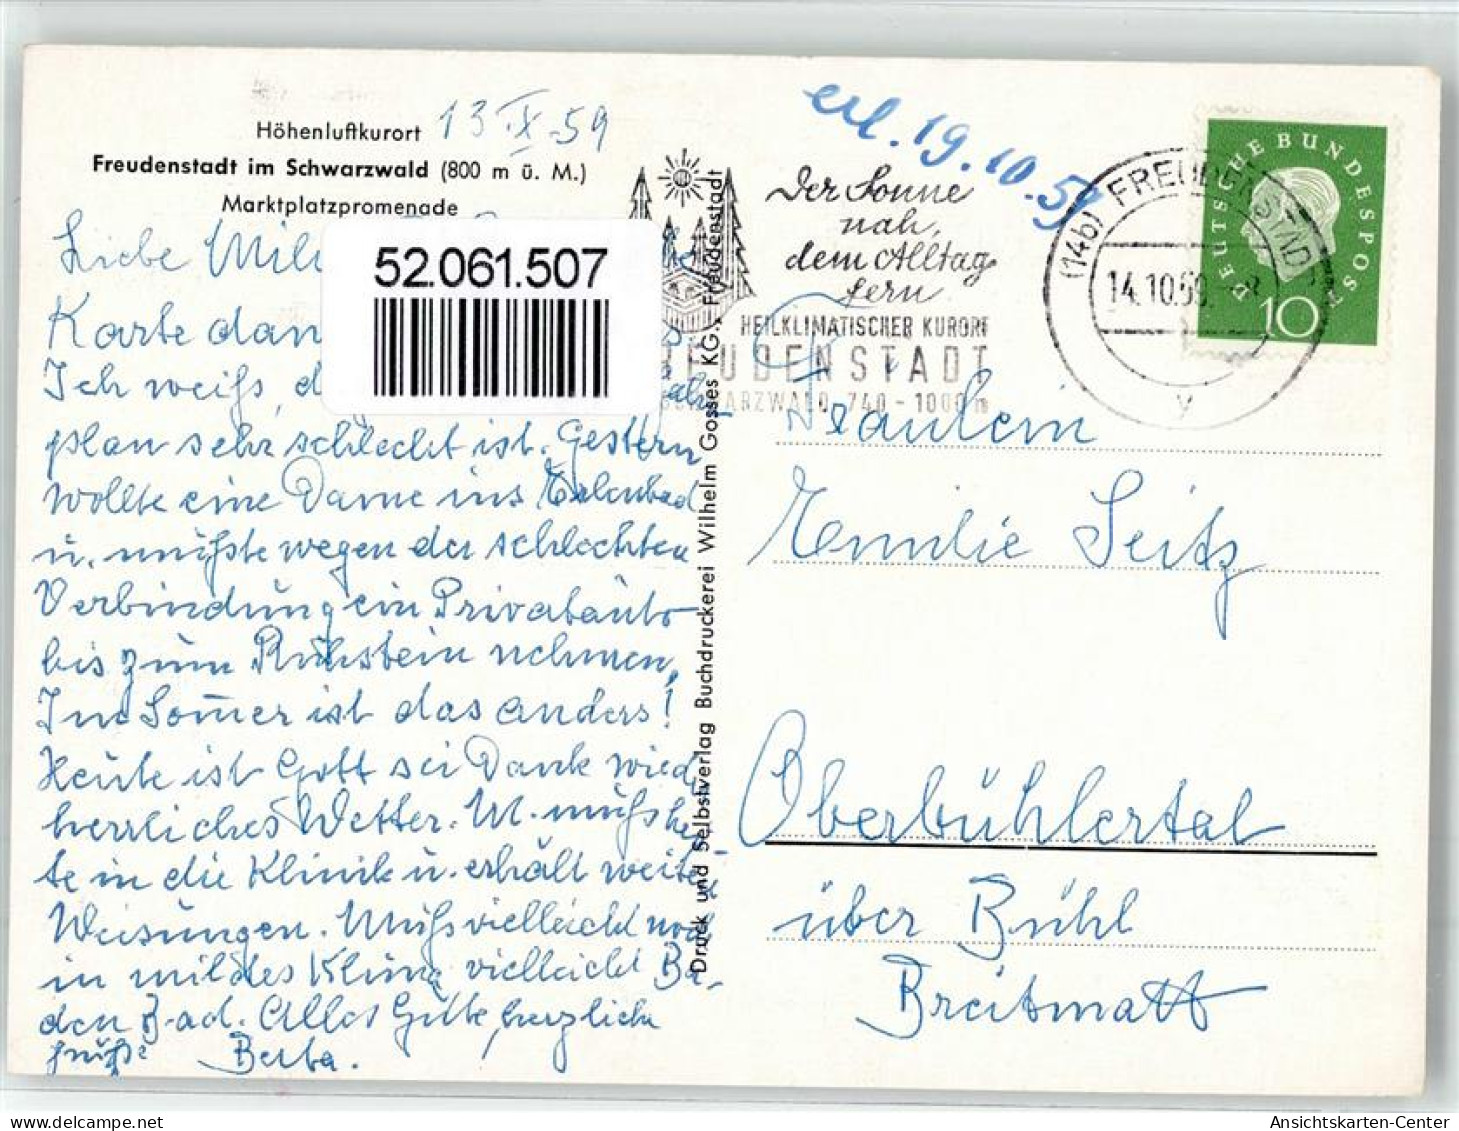 Höhenluftkurort
13.X.59
Freudenstadt im Schwarzwald (800 m ü. M.)
Marktplatzpromenade
Liebe
Karte
Ich weiß,
plan sehr schlecht ist. Gestern
wollte eine Dame ins Erlenbad
u. mußte wegen der schlechten
Verbindung ein Privatauto
bis zum Ruhstein nehmen,
Im Som̄er ist das anders!
Heute ist Gott sei Dank wied
herrliches Wetter. M. muß heu-
te in die Klinik u. erhält weitere
Weisungen. Muß vielleicht noch
in mildes Klima vielleicht Ba-
den B-ad. Alles Gute, herzliche
Grüße Berta.
52.061.507
Druck und Selbstverlag Buchdruckerei Wilhelm Gosses KG., Freudenstadt
Der Sonne
nah,
dem Alltag
fern
HEILKLIMATISCHER KURORT
REUDENSTADT
SCHWARZWALD 740 - 1000 m
erl. 19.10.59
(14b) FREUDENSTADT
14.10.59
y
DEUTSCHE BUNDESPOST
10
Fräulein
Emilie Seitz
Oberbühlertal
über Bühl
Breitmatt
Ansichtskarten-Center